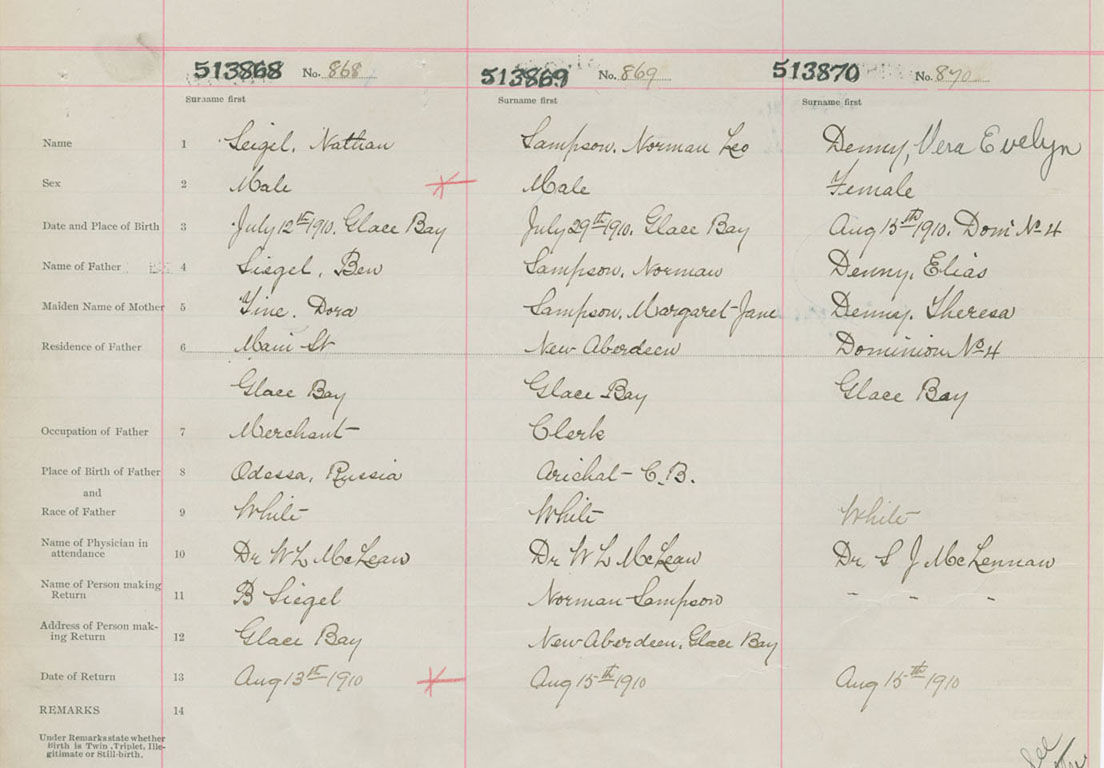 513868 No. 868 513869 No. 869 513870 No. 870
Surname first Surname first Surname first
Name 1 Seigel, Nathan Sampson, Norman Leo Denny, Vera Evelyn
Sex 2 Male Male Female
Date and Place of Birth 3 July 12th 1910, Glace Bay July 29th 1910, Glace Bay Aug 15th 1910, Dom No 4
Name of Father 4 Siegel, Ben Sampson, Norman Denny, Elias
Maiden Name of Mother 5 Fine, Dora Sampson, Margaret Jane Denny, Theresa
Residence of Father 6 Main St New Aberdeen Dominion No 4
Glace Bay Glace Bay Glace Bay
Occupation of Father 7 Merchant Clerk
Place of Birth of Father 8 Odessa, Russia Arichat - C.B.
and
Race of Father 9 White White White
Name of Physician in
attendance 10 Dr W L McLean Dr W L McLean Dr. S J McLennan
Name of Person making
Return 11 B Siegel Norman Sampson - - -
Address of Person mak-
ing Return 12 Glace Bay New Aberdeen, Glace Bay
Date of Return 13 Aug 13th 1910 Aug 15th 1910 Aug 15th 1910
REMARKS 14
Under Remarks state whether
Birth is Twin, Triplet, Ille-
gitimate or Still-birth.
See